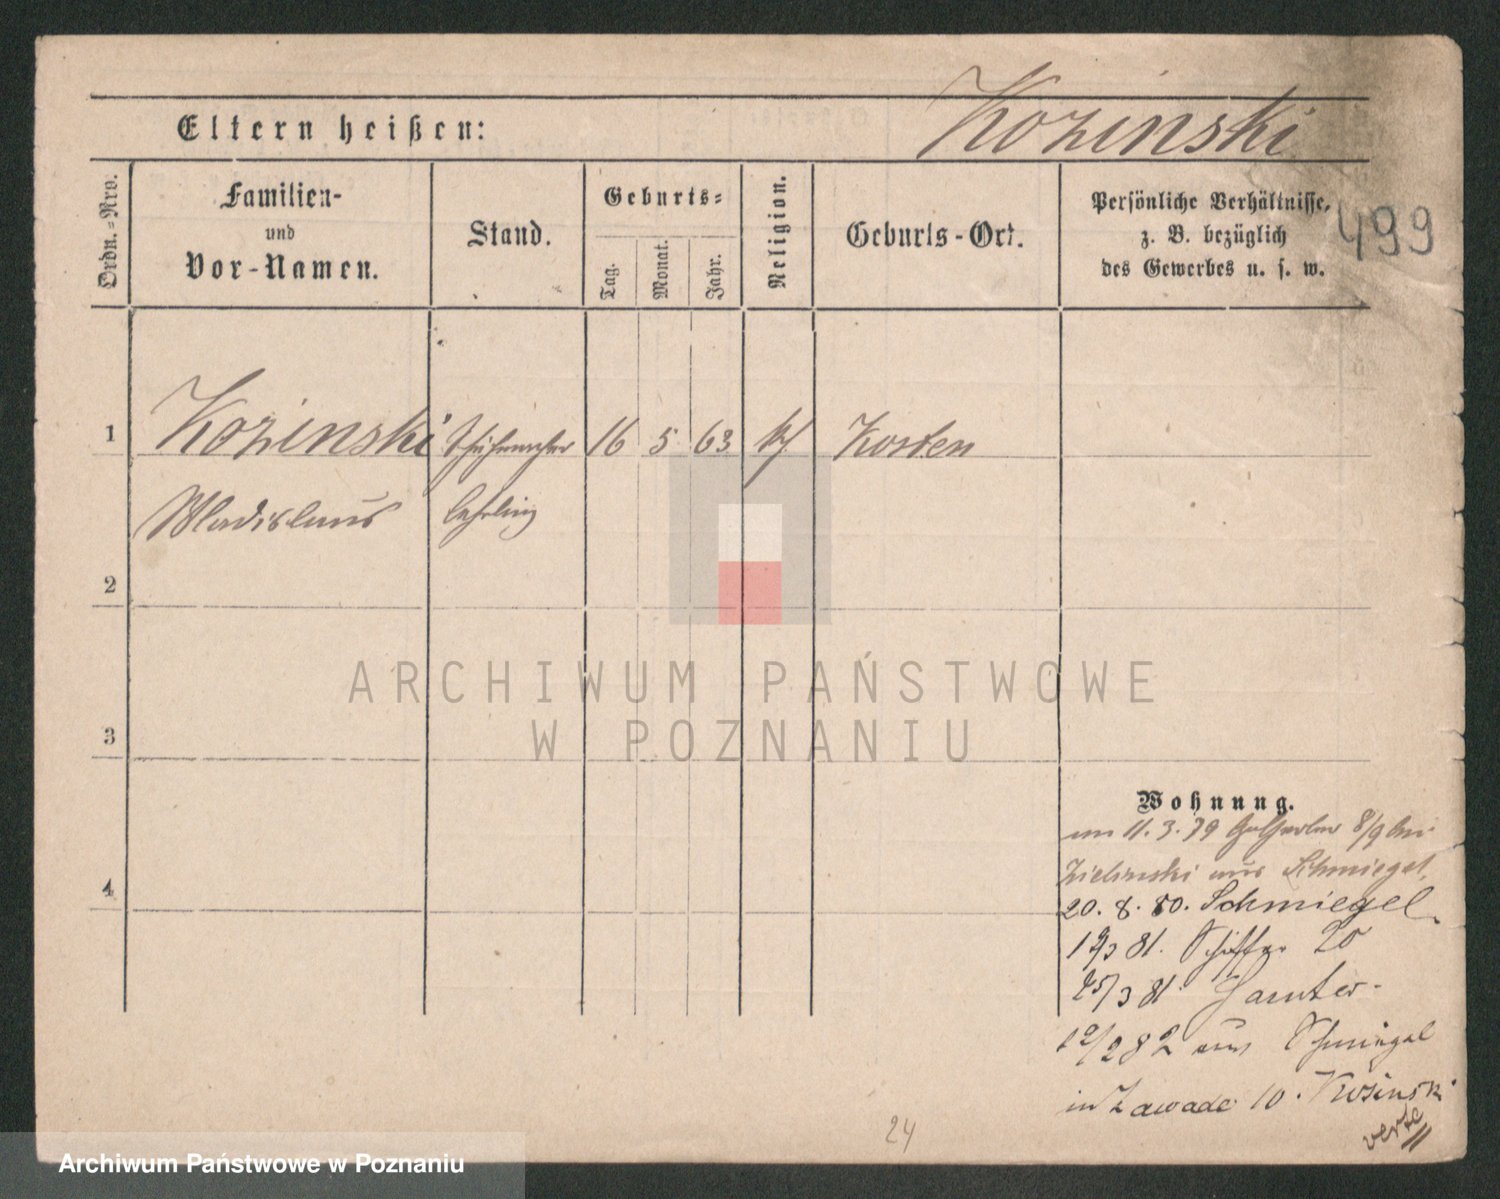 Eltern heißen:
Kozinski
Ordn.-Nro.
Familien-
und
Vor-Namen.
Stand.
Geburts-
Tag.
Monat.
Jahr.
Religion.
Geburts-Ort.
Persönliche Verhältnisse,
z. B. bezüglich
des Gewerbes u. s. w.
499
1
Kozinski Schuhmacher 16 5 63 kf. Kosten
Wladislaus lehrling
2
3
4
ARCHIWUM PAŃSTWOWE
W POZNANIU
Wohnung.
11. 3. 79 8/9 bei
Zielinski aus Schmiegel.
20. 8. 80. Schmiegel.
81. Schiffer 20
25/3 81
12/2 82 aus Schmiegel
in Zawade 10. Kosinski
verte
24
Archiwum Państwowe w Poznaniu